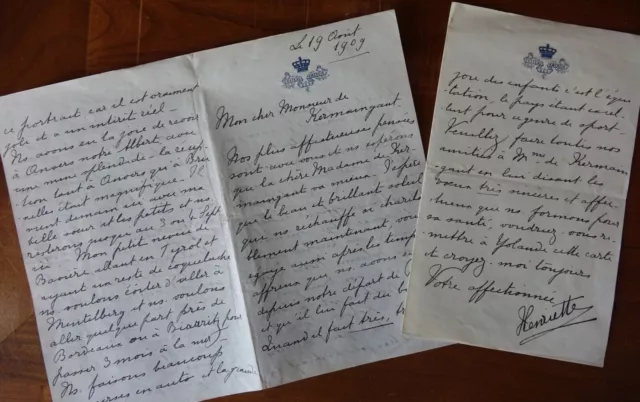 Le 19 Août
1909
Mon cher Monsieur de
Kermaingant
Nos plus affectueuses pensées
sont avec vous et ns espérons
que la chère Madame de Ker
maingant va mieux. J'espère
que le beau et brillant soleil
qui ns réchauffe si charita
blement maintenant, vous
égaye aussi après les temps
affreux que ns avons eu
depuis notre départ de
et qu'il leur fait du
Quand il fait très,
ce portrait car il est vraiment
joli et a un intérêt réel
Ns avons eu la joie de revoir
à Anvers notre Albert, avec
une mine splendide - la récep
tion tant à Anvers qu'à Bru
xelles était magnifique. Il
vient demain ici avec ma
belle sœur et les petits et ns
resterons jusqu'au 3 ou 4 Sept
ici. Mon petit neveu de
Bavière allant en Tyrol et
ayant un reste de coqueluche
ns voulons éviter d'aller à
Mentelberg et ns voulons
aller quelque part près de
Bordeaux ou à Biarritz pour
passer 3 mois à la mer
Ns faisons beaucoup
en auto et la grande
joie des enfants c'est l'équi
tation, le pays étant excel
lent pour ce genre de sport
Veuillez faire toutes nos
amitiés à Mme de Kermain
gant en lui disant les
vœux très sincères et affec
tueux que ns formons pour
sa santé, voudriez vous re
mettre à Yolande cette carte
et croyez-moi toujours
Votre affectionnée
Henriette